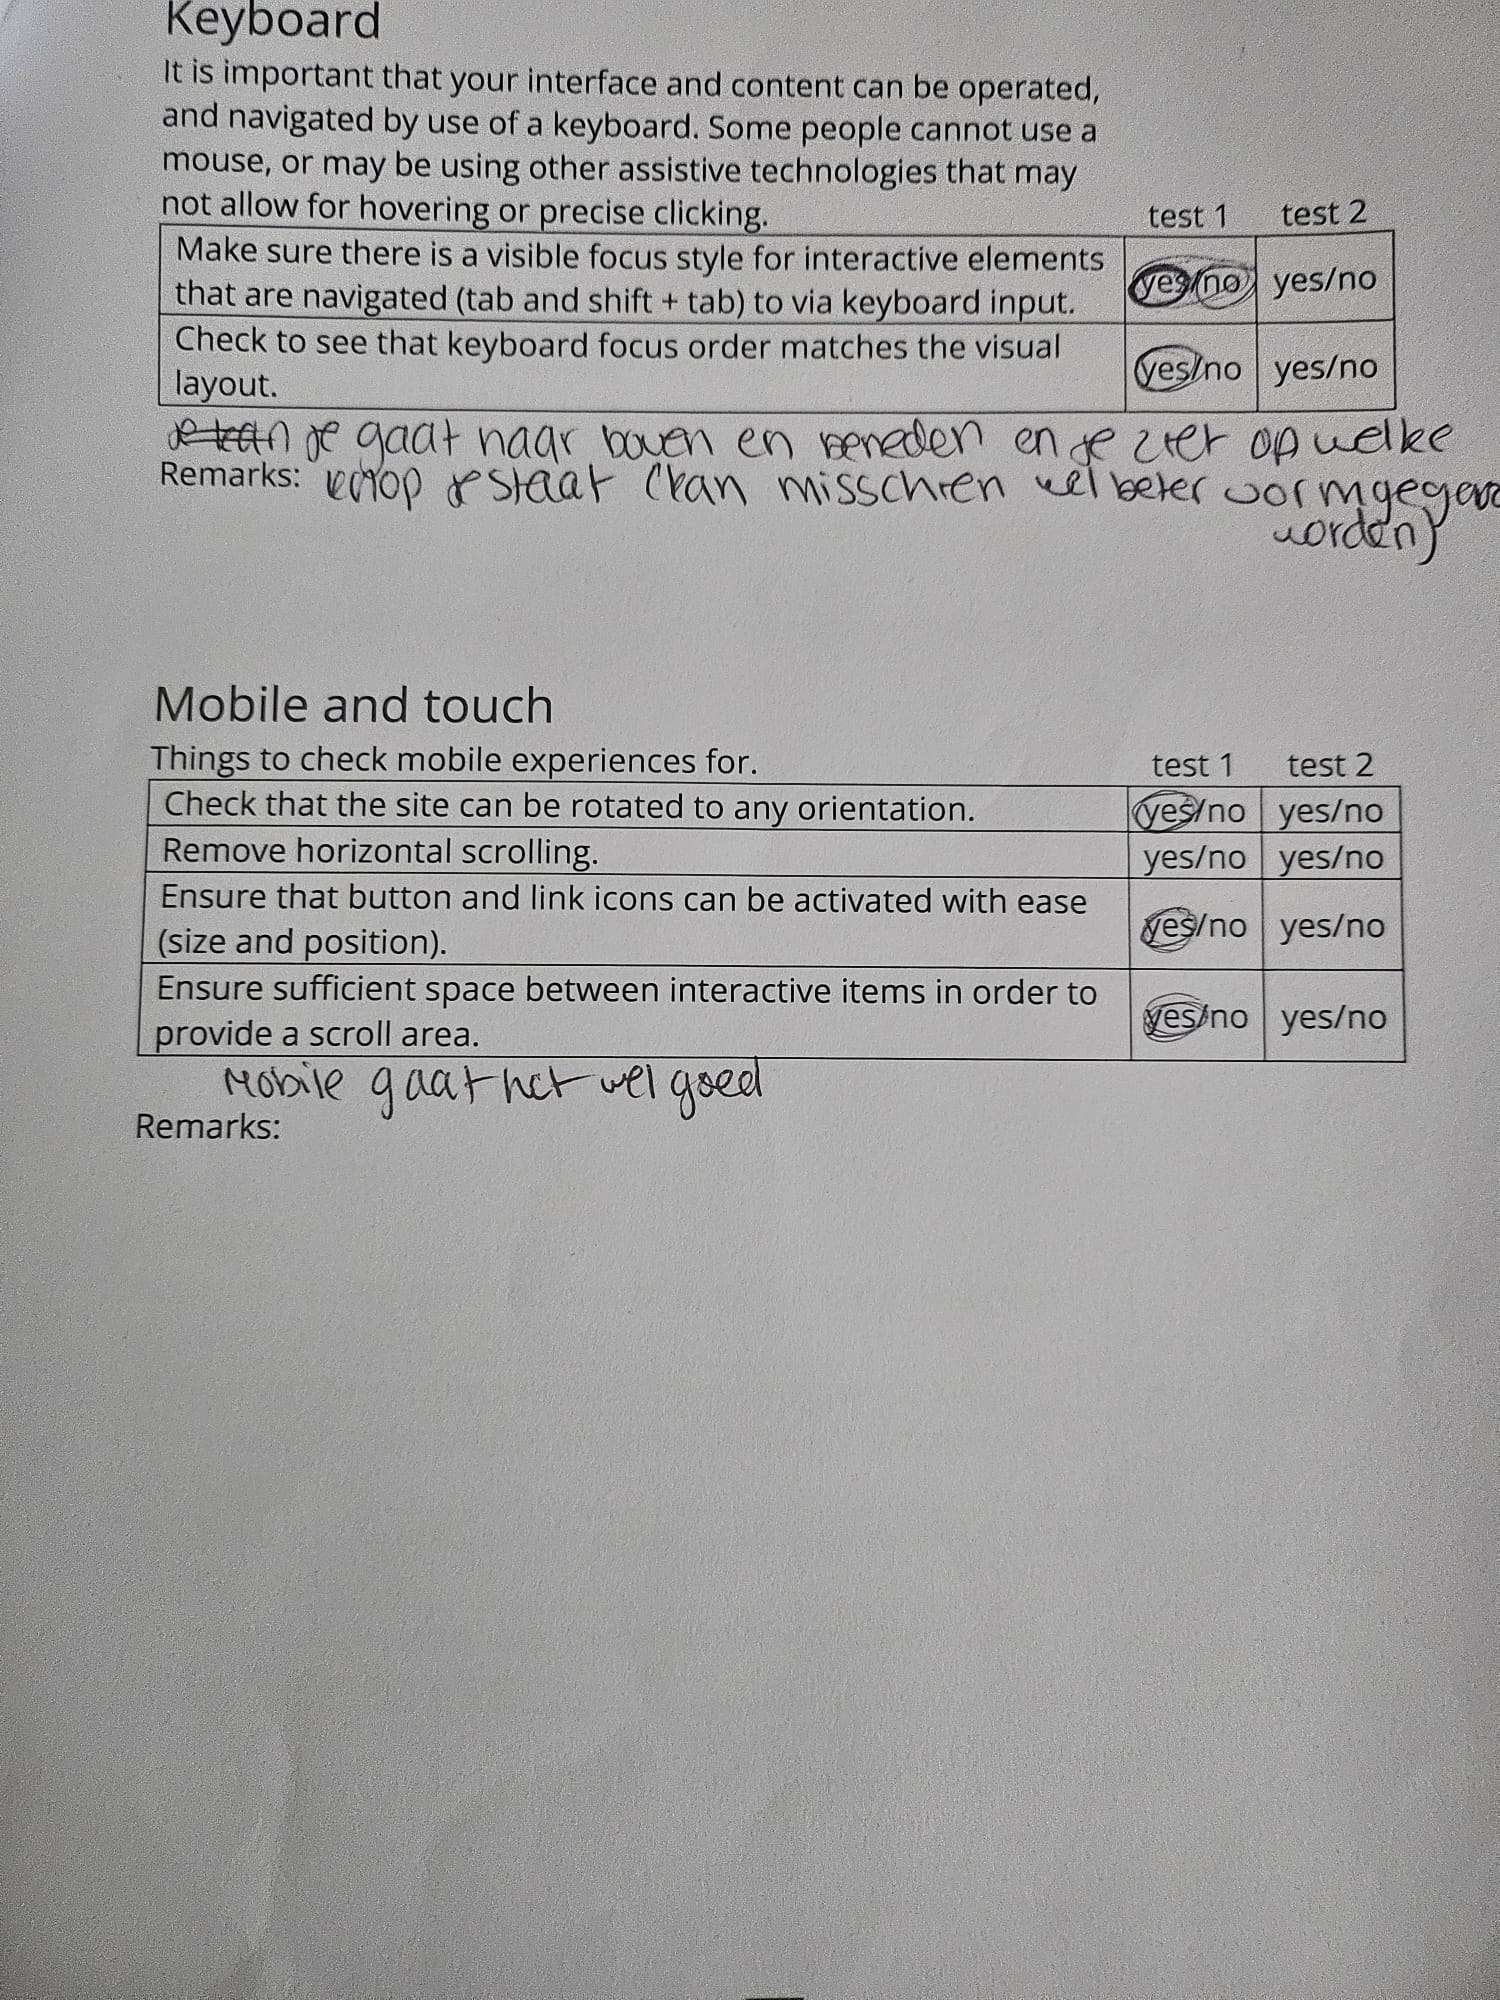 Keyboard
It is important that your interface and content can be operated,
and navigated by use of a keyboard. Some people cannot use a
mouse, or may be using other assistive technologies that may
not allow for hovering or precise clicking.
test 1 test 2
Make sure there is a visible focus style for interactive elements
that are navigated (tab and shift + tab) to via keyboard input.
yes/no yes/no
Check to see that keyboard focus order matches the visual
layout.
yes/no yes/no
je gaat naar boven en beneden en je ziet op welke
Remarks: knop je staat (kan misschien wel beter vormgegeven
worden)
Mobile and touch
Things to check mobile experiences for.
test 1 test 2
Check that the site can be rotated to any orientation. yes/no yes/no
Remove horizontal scrolling. yes/no yes/no
Ensure that button and link icons can be activated with ease
(size and position).
yes/no yes/no
Ensure sufficient space between interactive items in order to
provide a scroll area.
yes/no yes/no
Mobile gaat het wel goed
Remarks: